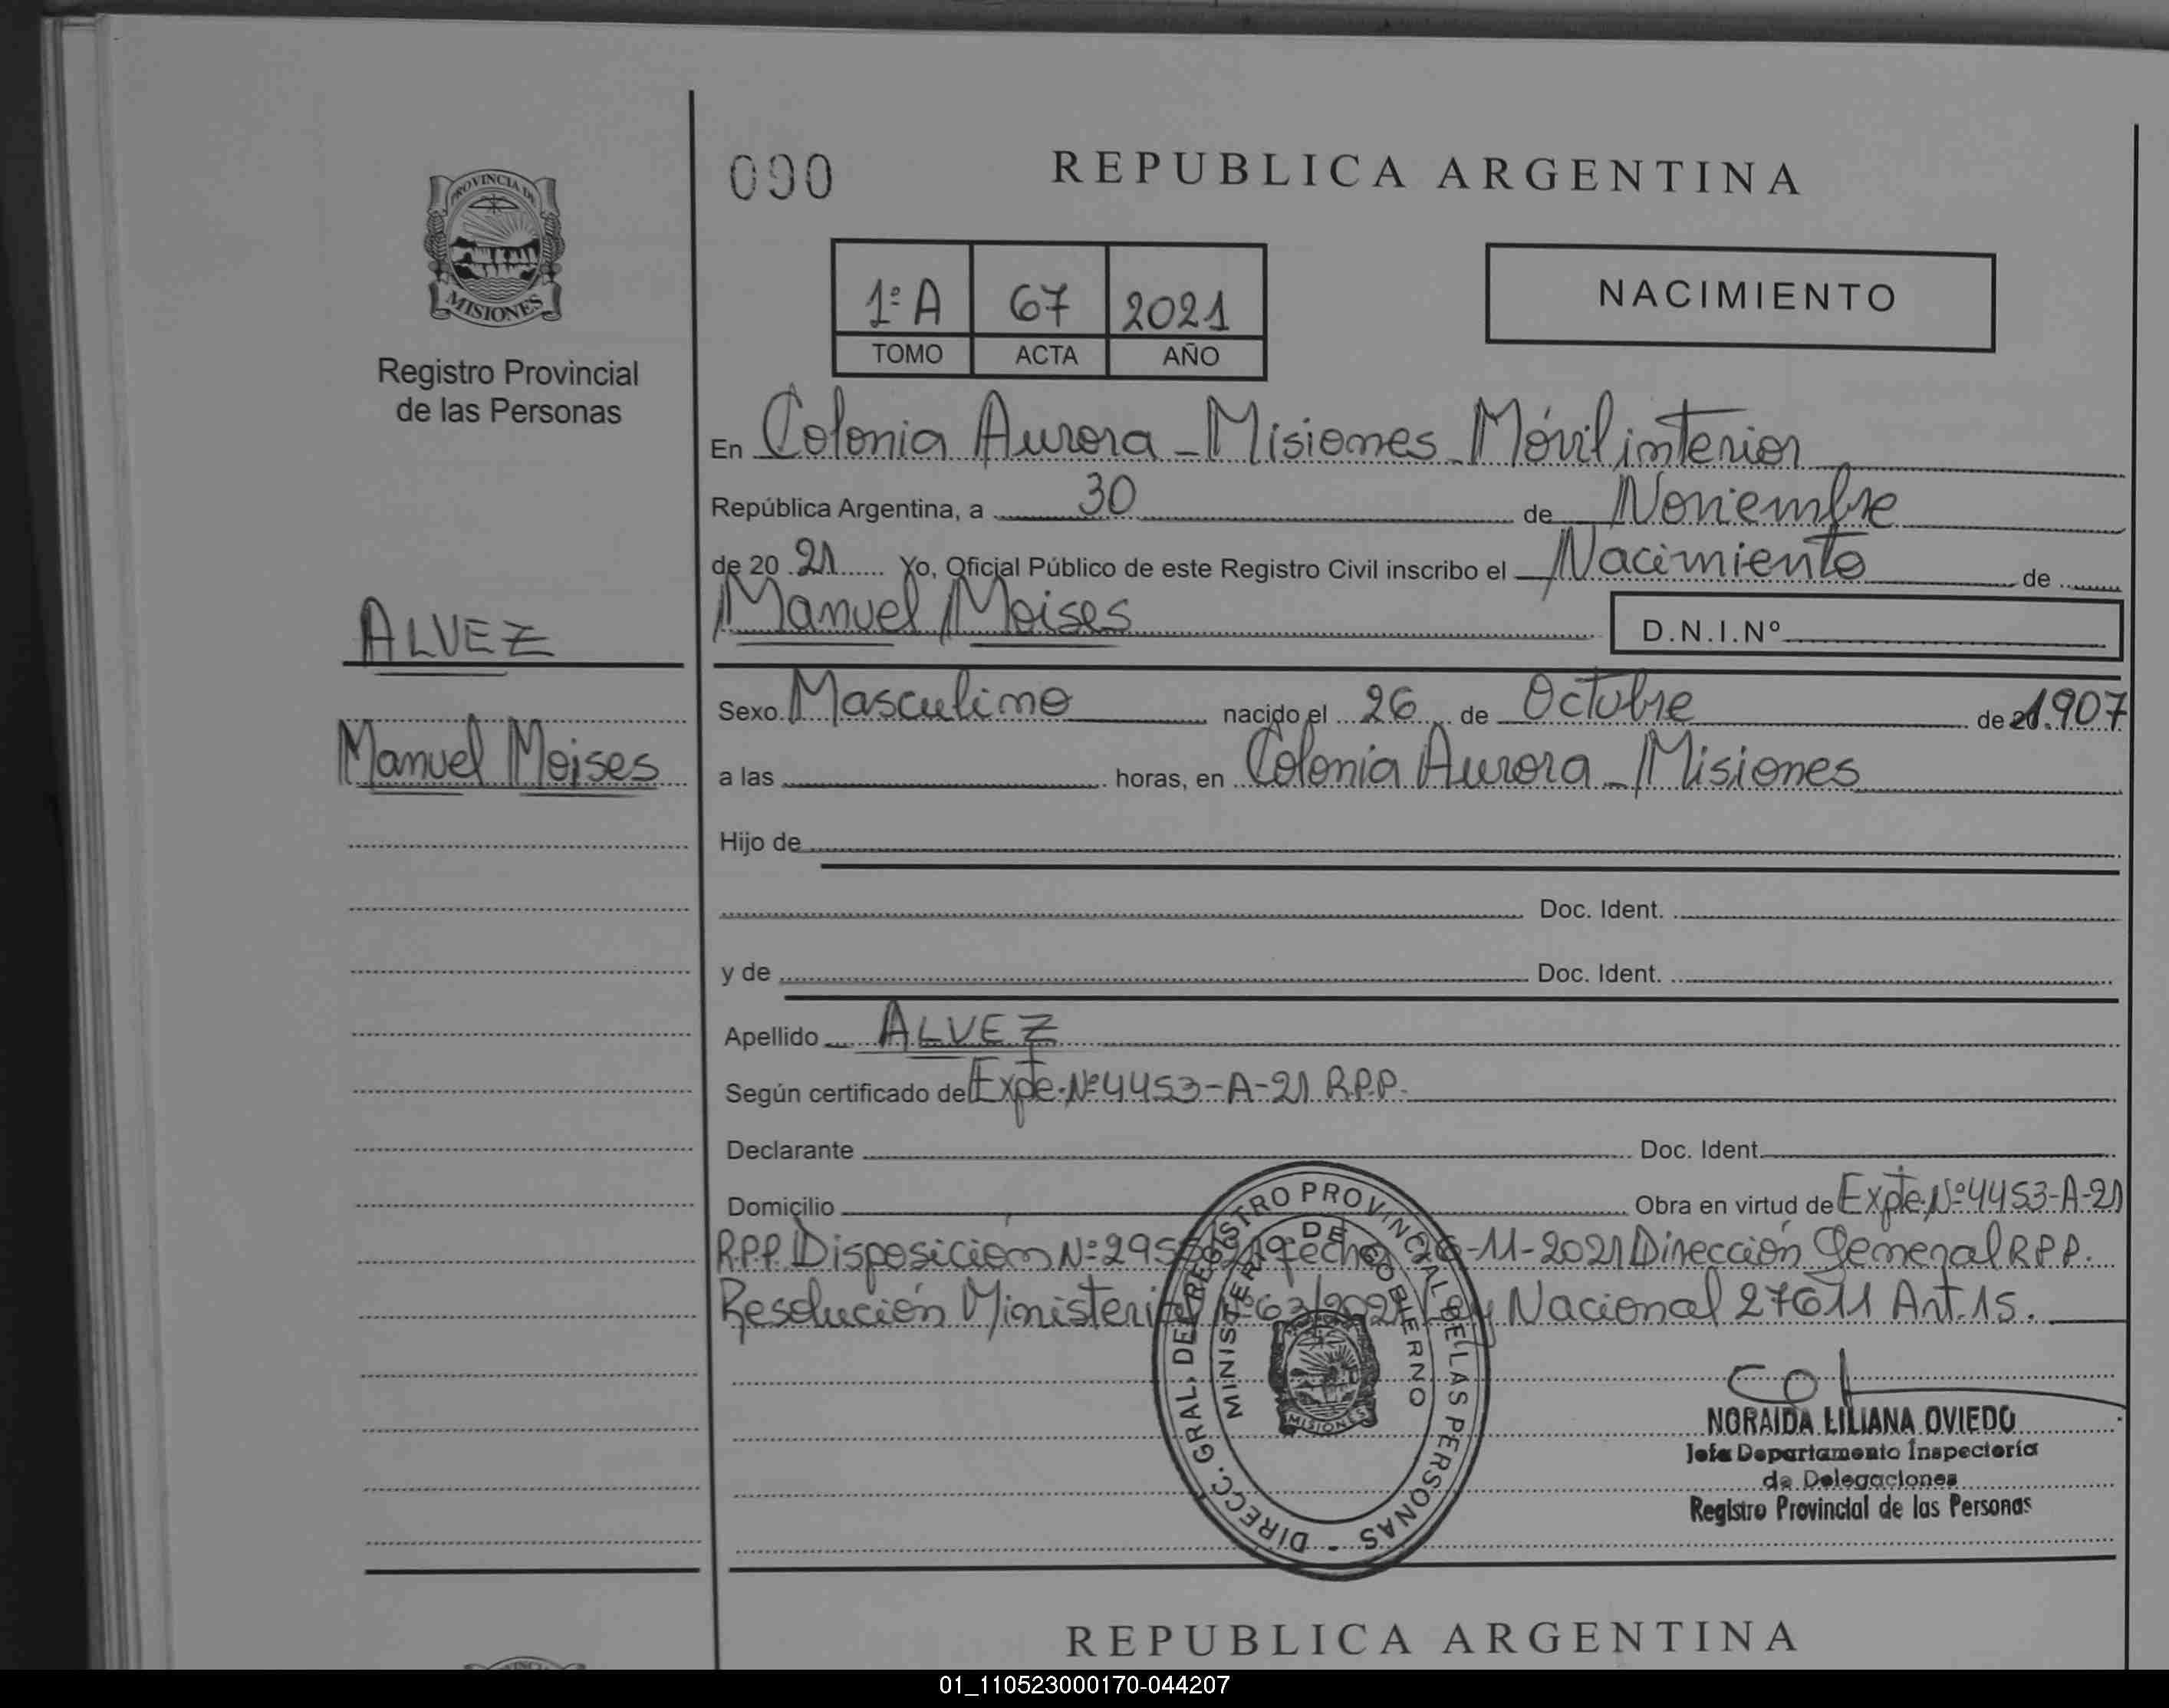 PROVINCIA DE
MISIONES
Registro Provincial
de las Personas
ALVEZ
Manuel Moises
000
REPUBLICA ARGENTINA
1º A 67 2021
TOMO ACTA AÑO
NACIMIENTO
En Colonia Aurora - Misiones Móvil interior
República Argentina, a 30 de Noviembre
de 20 21 Yo, Oficial Público de este Registro Civil inscribo el Nacimiento de
Manuel Moises D.N.I.Nº
Sexo Masculino nacido el 26 de Octubre de 1.907
a las horas, en Colonia Aurora - Misiones
Hijo de
Doc. Ident.
y de Doc. Ident.
Apellido ALVEZ
Según certificado de Expte. Nº 4453-A-21 R.P.P.
Declarante Doc. Ident.
Domicilio Obra en virtud de Expte. Nº 4453-A-21
R.P.P. Disposición Nº fecha 26-11-2021 Dirección General R.P.P.
Resolución Ministerial Nº 63/2021 Ley Nacional 27611 Art. 15.
DIRECC. GRAL. DEL REGISTRO PROVINCIAL DE LAS PERSONAS -
MINISTERIO DE GOBIERNO
MISIONES
NORAIDA LILIANA OVIEDO
Jefa Departamento Inspectoría
de Delegaciones
Registro Provincial de las Personas
REPUBLICA ARGENTINA
01_110523000170-044207